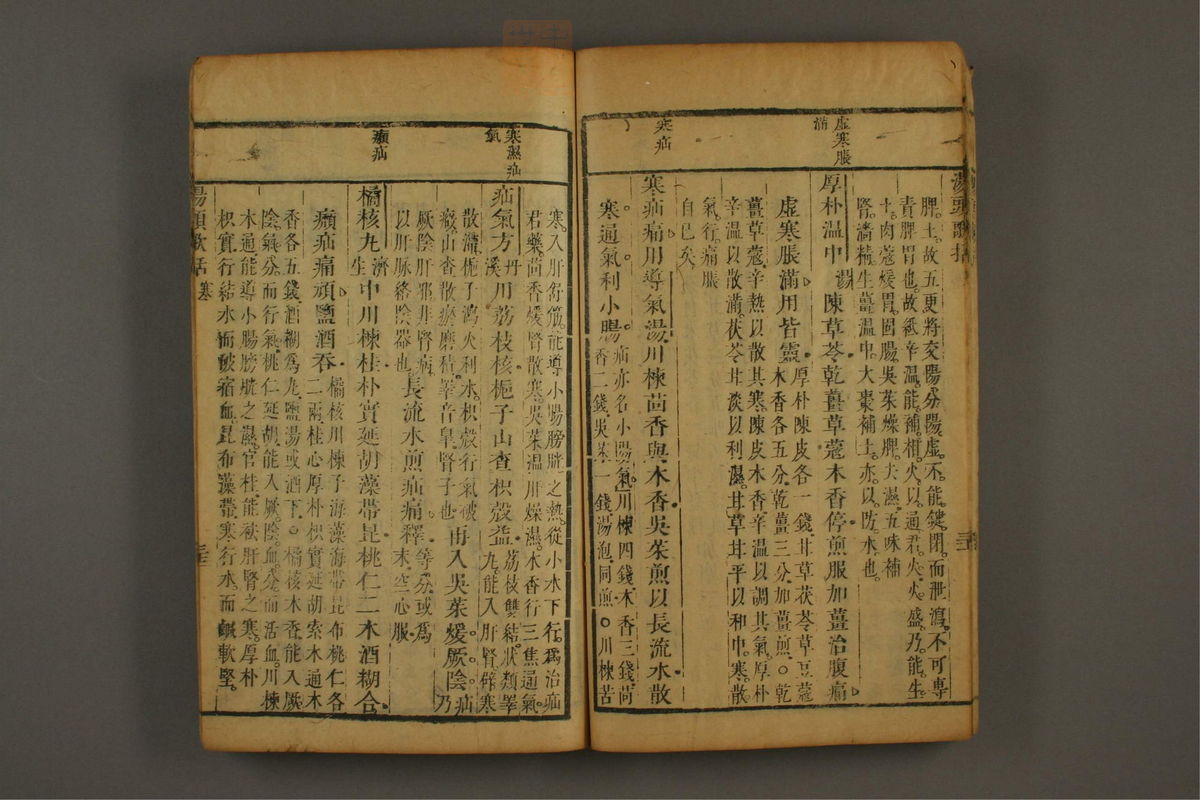 湯頭歌括
虛寒脹滿
寒疝
脾土故五更將交陽分陽虛不能鍵閉而泄瀉不可專
責脾胃也故紙辛温能補相火以通君火火盛乃能生
土肉蔻煖胃固腸吳茱燥脾去濕五味補
腎濇精生薑温中大棗補土亦以防水也
厚朴温中湯陳草苓乾薑草蔻木香停煎服加薑治腹痛
虛寒脹滿用皆靈
厚朴陳皮各一錢甘草茯苓草豆蔻
木香各五分乾薑三分加薑煎○乾
薑草蔻辛熱以散其寒陳皮木香辛温以調其氣厚朴
辛温以散滿茯苓甘淡以利濕甘草甘平以和中寒散
氣行痛脹
自已矣
寒疝痛用導氣湯川楝茴香與木香吳茱煎以長流水散
寒通氣利小腸
疝亦名小腸氣川楝四錢木香三錢茴
香二錢吳茱一錢湯泡同煎○川楝苦
寒濕疝氣
㿗疝
寒入肝舒筋能導小腸膀胱之熱從小水下行為治疝
君藥茴香煖腎散寒吳茱温肝燥濕木香行三焦通氣
疝氣方丹溪用荔枝核梔子山查枳殼益
荔枝雙結狀類睪
丸能入肝腎辟寒
散滯梔子瀉火利水枳殼行氣破
癥山查散瘀磨積睪音皐腎子也
再入吳茱煖厥陰
疝乃
厥陰肝邪非腎病
以肝脉絡陰器也
長流水煎疝痛釋
等分或為
末空心服
橘核丸濟生中川楝桂朴實延胡藻帶昆桃仁二木酒糊合
㿗疝痛頑鹽酒吞
橘核川楝子海藻海帶昆布桃仁各
二兩桂心厚朴枳實延胡索木通木
香各五錢酒糊為丸鹽湯或酒下○橘核木香能入厥
陰氣分而行氣桃仁延胡能入厥陰血分而活血川楝
木通能導小腸膀胱之濕官桂能祛肝腎之寒厚朴
枳實行結水而破宿血昆布藻帶寒行水而鹹軟堅
湯頭歌括
寒